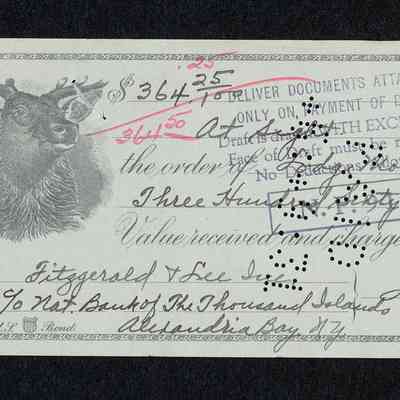 .25
$ 364 25/100
364 50
DELIVER DOCUMENTS ATTA
ONLY ON PAYMENT OF D
Draft is drawn WITH EXC
Face of Draft must be
No Deductions Allow
At Sight
the order of
Three Hundred Sixty
N. P.
Value received and charge
Fitzgerald & Lee Inc
c/o Nat. Bank of The Thousand Islands
Alexandria Bay, N.Y.
Bond